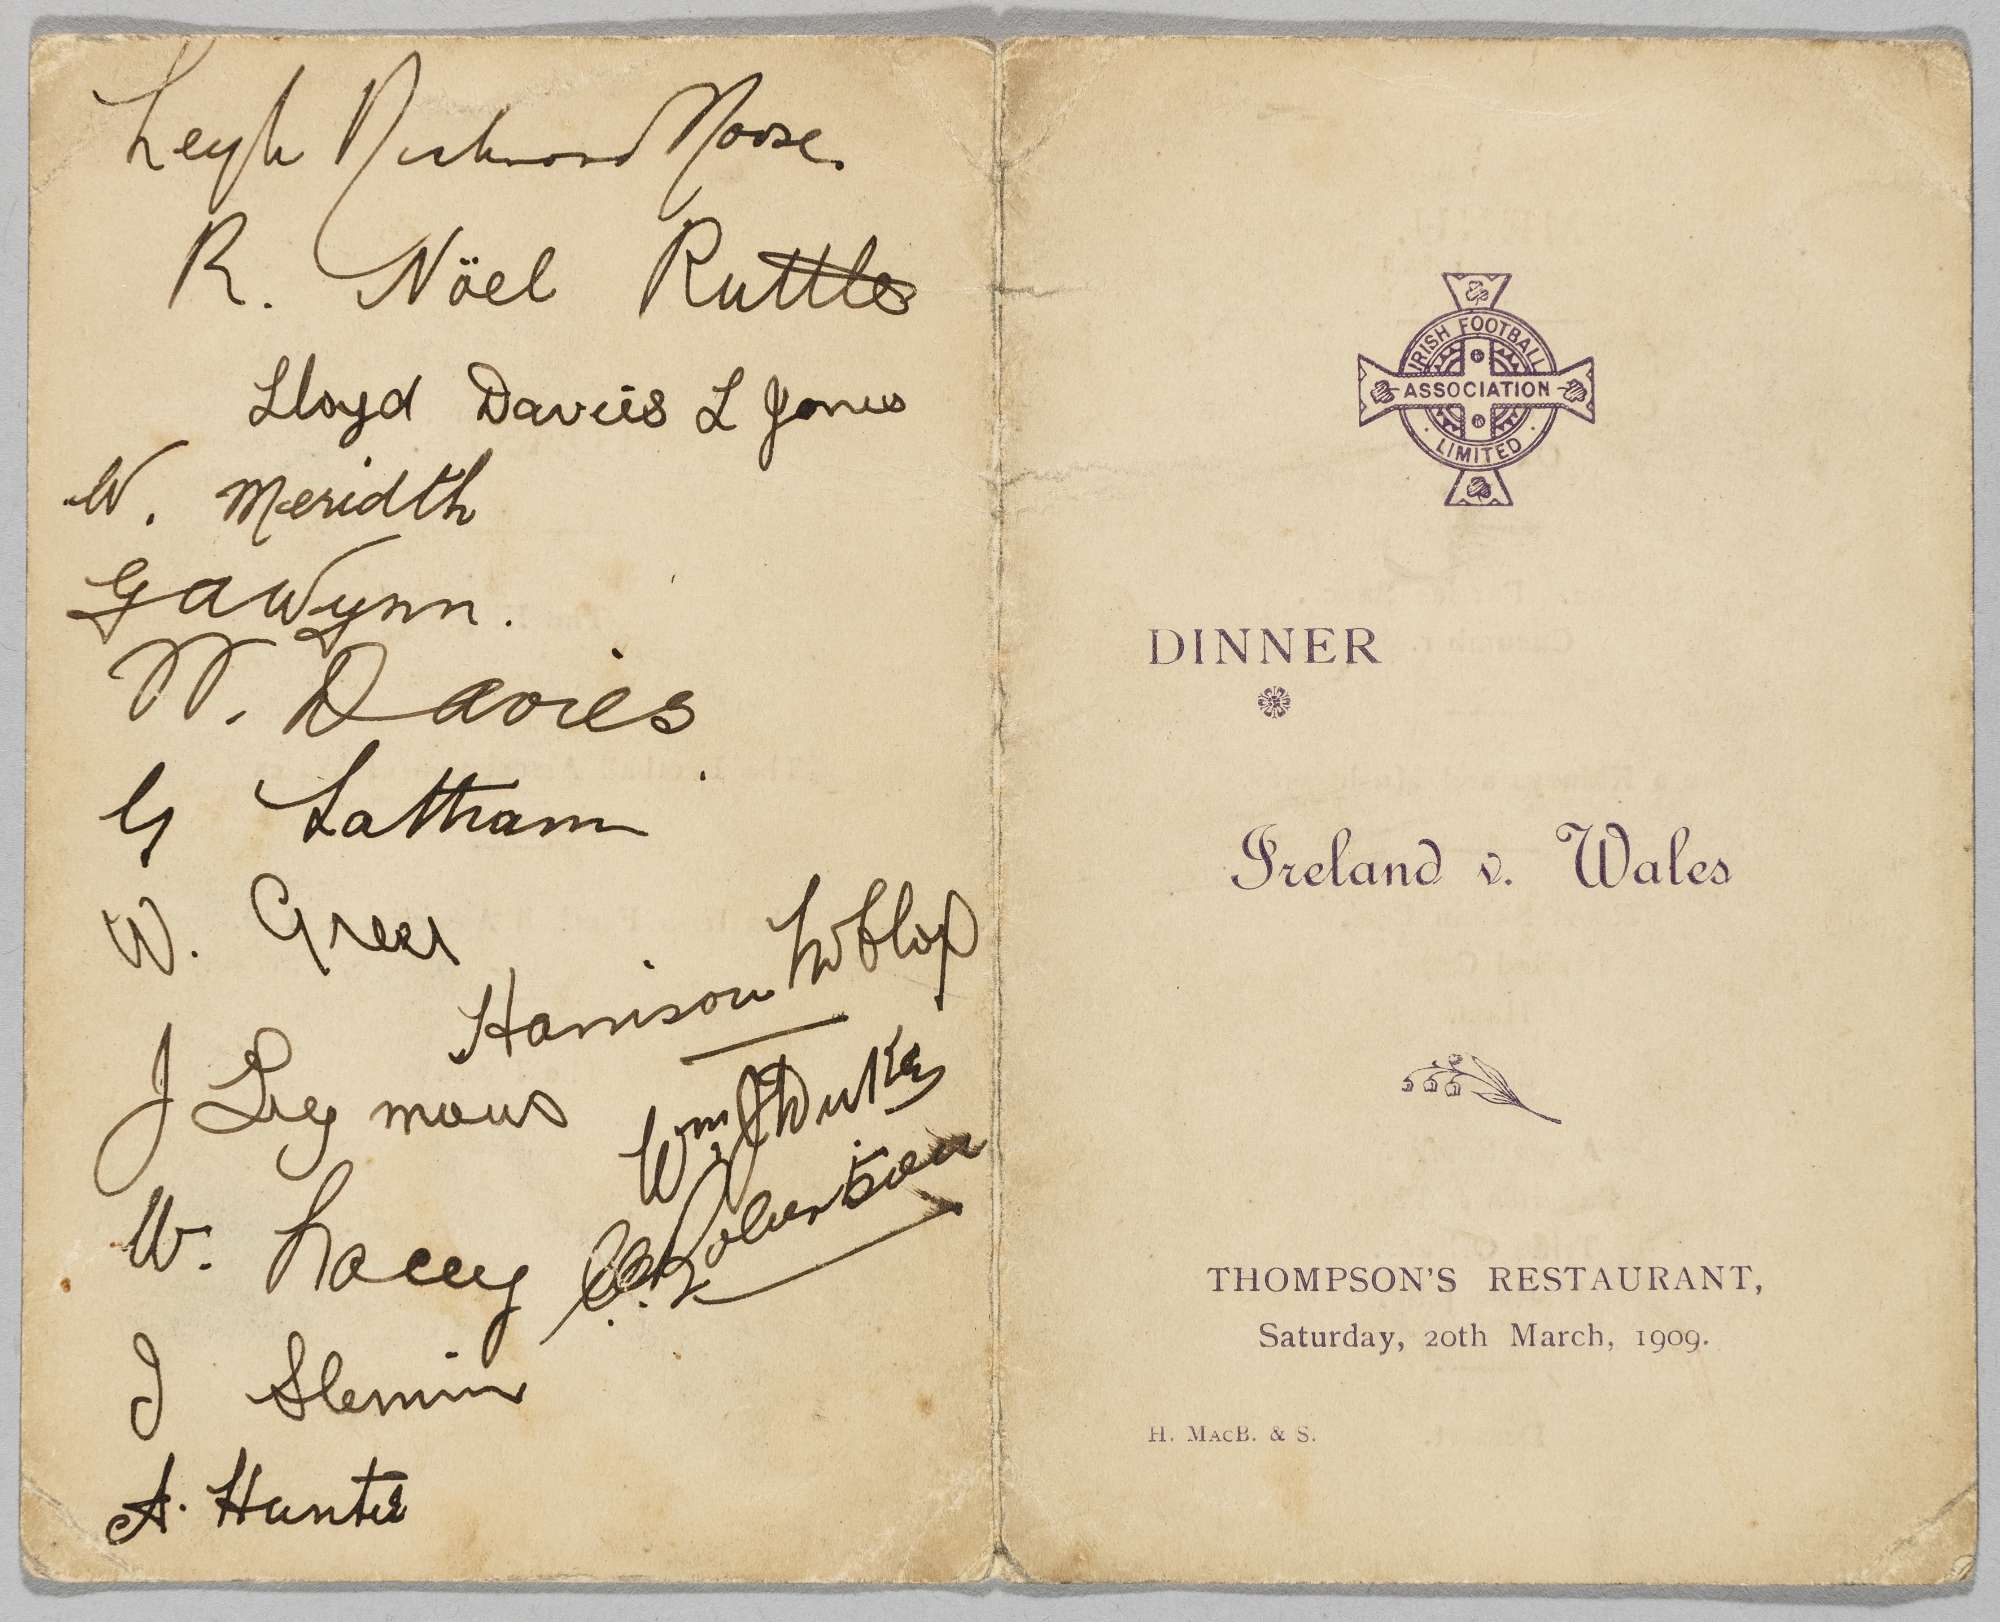 Leigh Richmond Moose.
R. Nöel Ruttle
Lloyd Davies L Jones
W. Meridth
G A Wynn.
W. Davies
G Latham
W. Green
Harrison
J Seymour
Wm. J Duke
W. Lacey
C. R. Robertson
J Slemin
A. Hunter
IRISH FOOTBALL
ASSOCIATION
LIMITED
DINNER
Ireland v. Wales
THOMPSON'S RESTAURANT,
Saturday, 20th March, 1909.
H. MacB. & S.